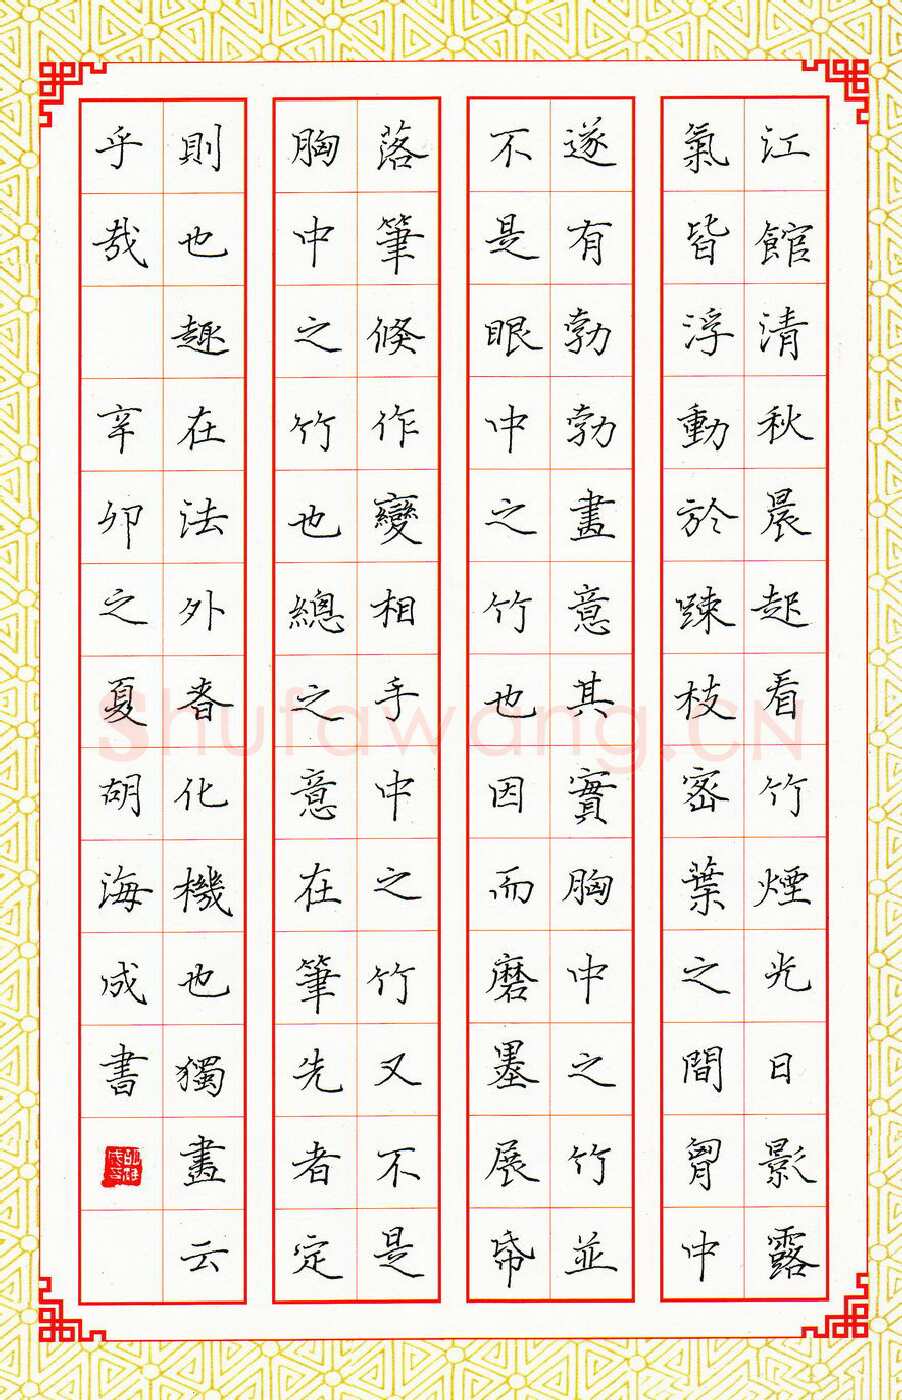 江館清秋晨起看竹煙光日影露
氣皆浮動於踈枝密葉之間胷中
遂有勃勃畫意其實胸中之竹並
不是眼中之竹也因而磨墨展帋
落筆倏作變相手中之竹又不是
胸中之竹也總之意在筆先者定
則也趣在法外者化機也獨畫云
乎哉 辛卯之夏胡海成書
Shufawang.CN